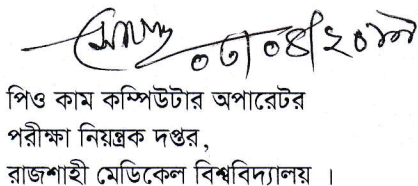 ০৩/০৪/২০১৯
পিও কাম কম্পিউটার অপারেটর
পরীক্ষা নিয়ন্ত্রক দপ্তর,
রাজশাহী মেডিকেল বিশ্ববিদ্যালয় ।